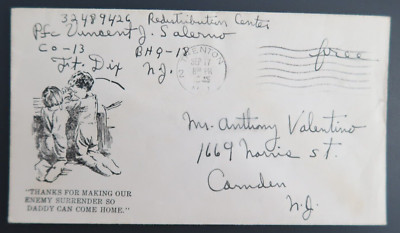 32489426 Redistribution Center
Pfc Vincent J. Salerno
Co-13 BHQ-18
Ft. Dix N.J.
TRENTON
SEP 17
1945
N.J.
2
free
Mr. Anthony Valentino
1669 Norris St.
Camden
N.J.
"THANKS FOR MAKING OUR
ENEMY SURRENDER SO
DADDY CAN COME HOME."